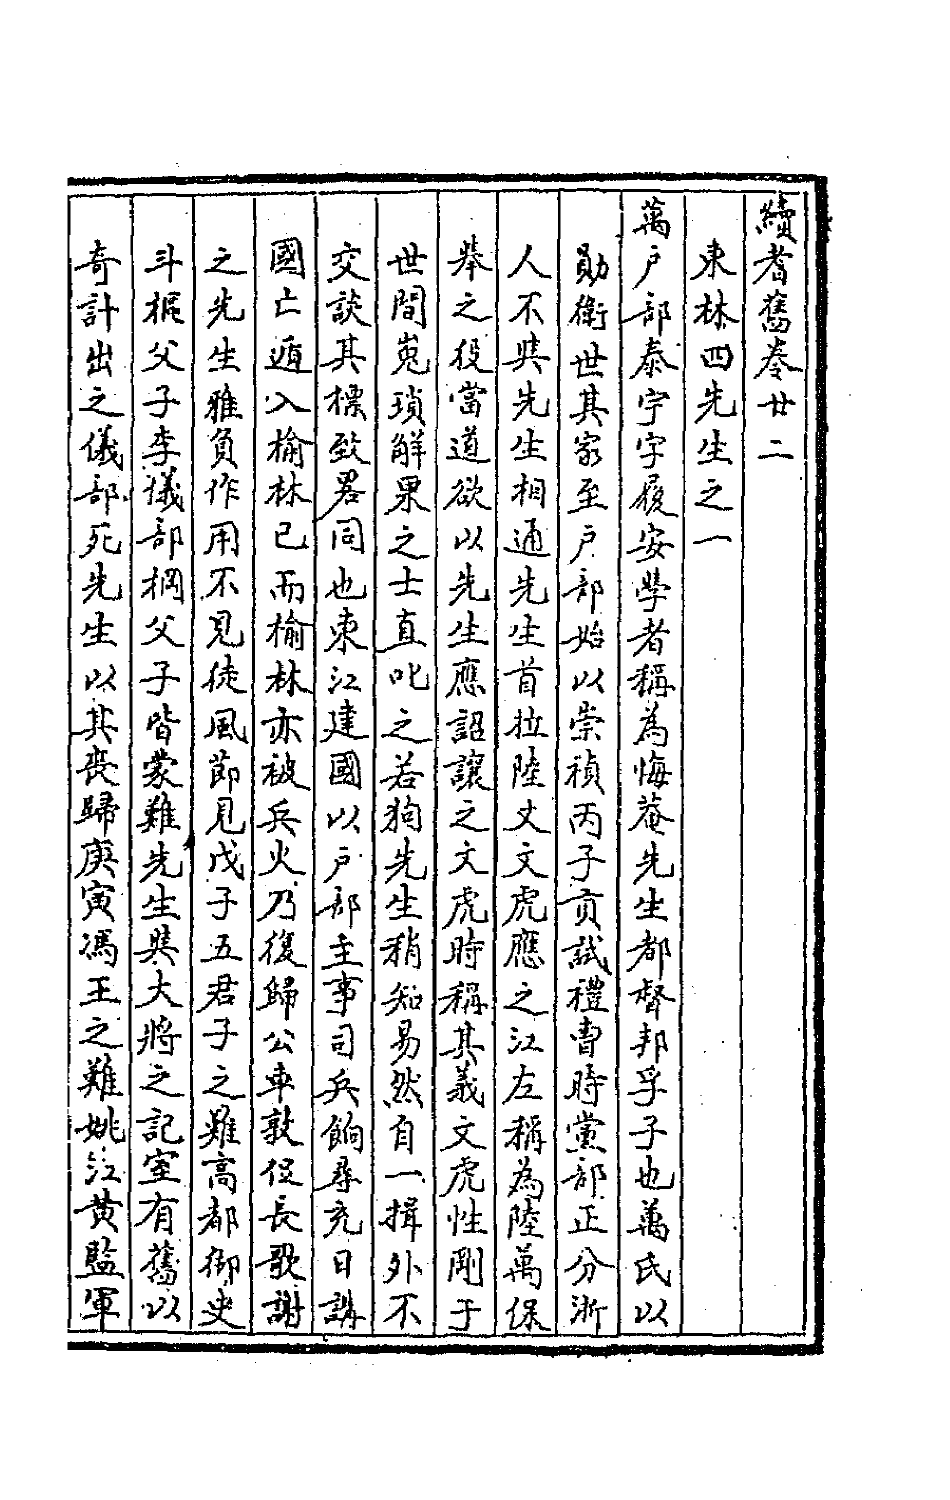 續耆舊卷廿二
東林四先生之一
萬戶部泰字字履安學者稱為悔菴先生都督邦孚子也萬氏以
勛衛世其家至戶部始以崇禎丙子貢試禮曹時黨部正分浙
人不與先生相通先生首拉陸丈文虎應之江左稱為陸萬保
舉之役當道欲以先生應詔讓之文虎時稱其義文虎性剛于
世間嵬瑣解果之士直叱之若狗先生稍知易然自一揖外不
交談其標致畧同也東江建國以戶部主事司兵餉尋充日講
國亡遁入榆林已而榆林亦被兵火乃復歸公車敦促長歌謝
之先生雅負作用不見徒風節見戊子五君子之難高都御史
斗樞父子李儀部棡父子皆蒙難先生與大將之記室有舊以
奇計出之儀部死先生以其喪歸庚寅馮王之難姚江黄監軍